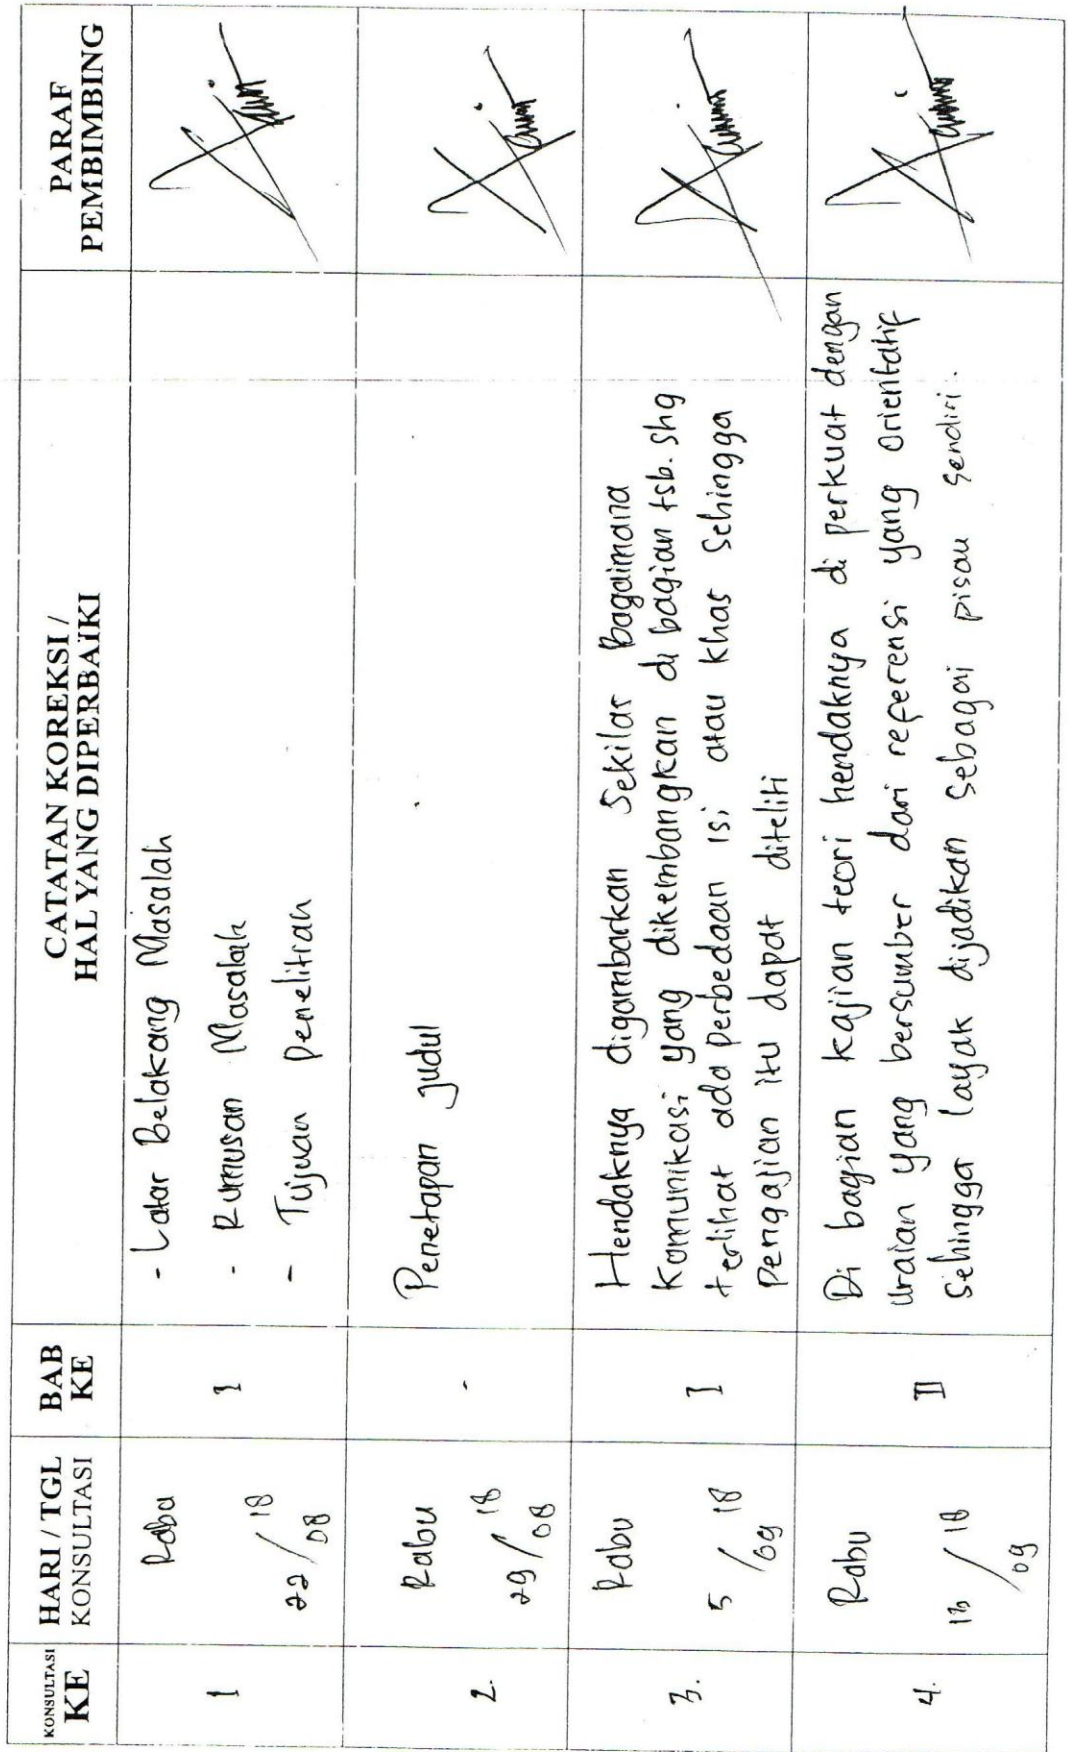 KONSULTASI
KE
HARI / TGL
KONSULTASI
BAB
KE
CATATAN KOREKSI /
HAL YANG DIPERBAIKI
PARAF
PEMBIMBING
1
Rabu
22/08 18
I
- Latar Belakang Masalah
- Rumusan Masalah
- Tujuan Penelitian
2.
Rabu
29/08 18
-
Penetapan judul
3.
Rabu
5/09 18
I
Hendaknya digambarkan Sekilas Bagaimana
Komunikasi yang dikembangkan di bagian tsb. shg
terlihat ada perbedaan isi, atau khas Sehingga
Pengajian itu dapat diteliti
4.
Rabu
/09 18
II
Di bagian kajian teori hendaknya di perkuat dengan
Uraian yang bersumber dari referensi yang orientatif
Sehingga layak dijadikan Sebagai pisau sendiri.